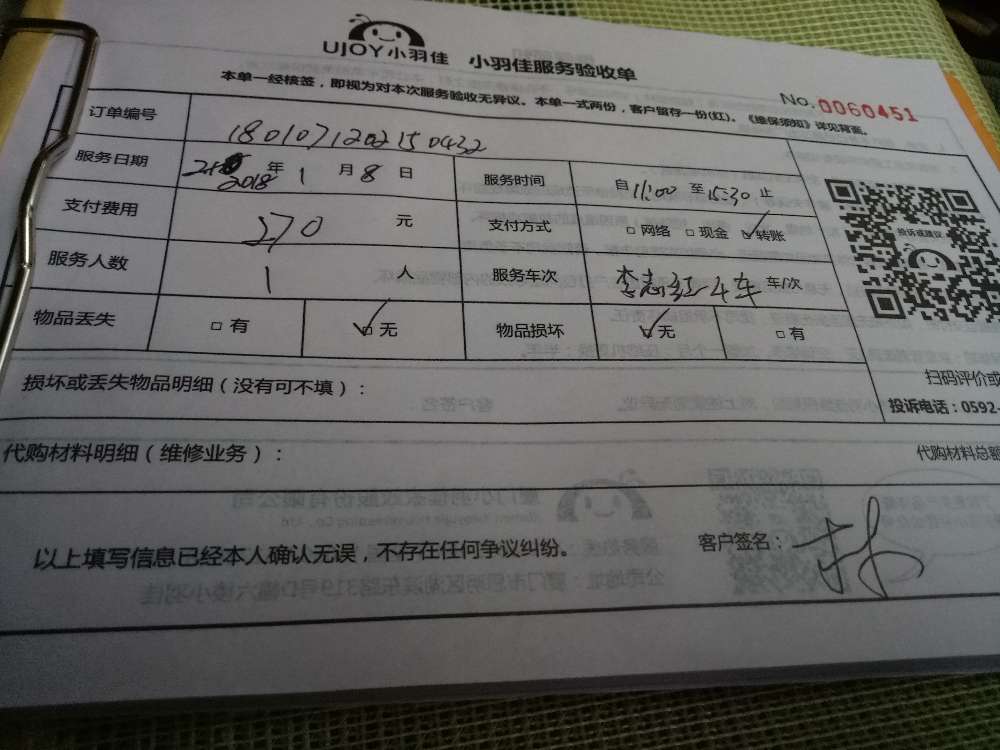 UJOY小羽佳 小羽佳服务验收单
本单一经核签，即视为对本次服务验收无异议。本单一式两份，客户留存一份(红)。《维保须知》详见背面。
No.0060451
订单编号 1801071202150432
服务日期 2018年1月8日 服务时间 自11:00至15:30止
投诉或建议
支付费用 370元 支付方式 □网络 □现金 ☑转账
服务人数 1人 服务车次 李志红4车 车/次
物品丢失 □有 ☑无 物品损坏 ☑无 □有
扫码评价或
损坏或丢失物品明细（没有可不填）：
投诉电话：0592-
代购材料明细（维修业务）： 代购材料总额
以上填写信息已经本人确认无误，不存在任何争议纠纷。 客户签名：